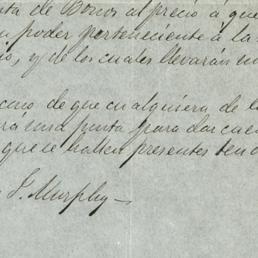 ta de Bonos al precio á que
poder perteneciente á la
y de los cuales llevarán
de que cualquiera de l
rá una junta para dar cuen
que se hallen presentes ten
J. Murphy